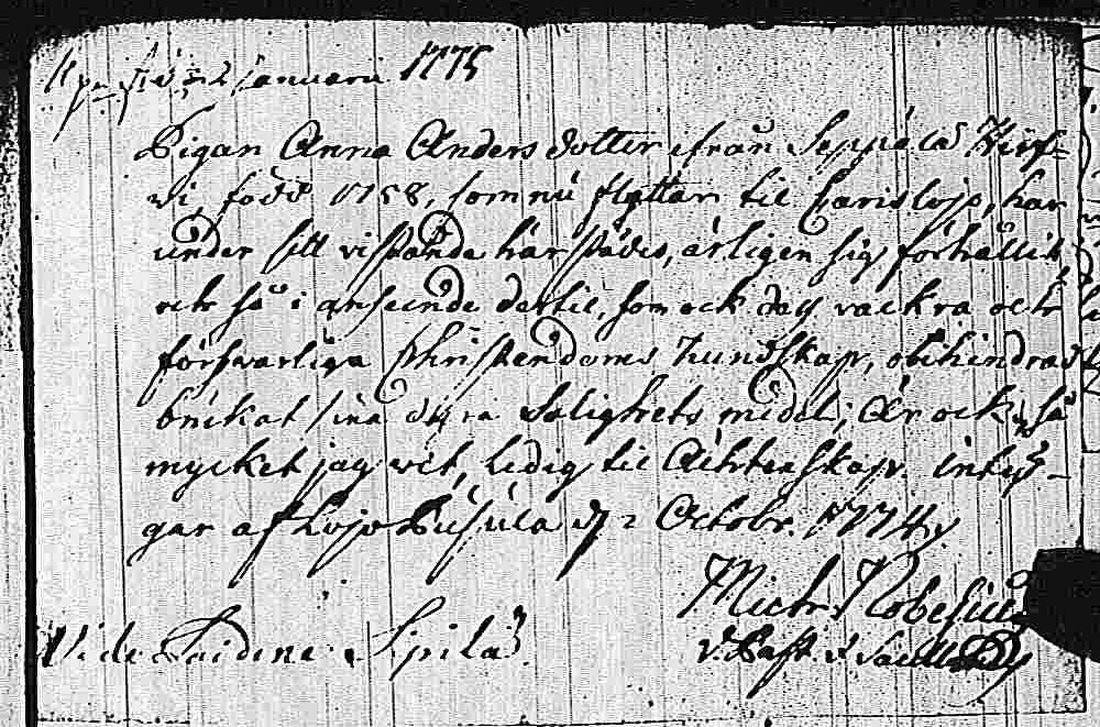 januarii 1775
Pigan Anna Anders dotter ifrån Seppälä Hirf-
vi, född 1758, som nu flyttar til Carislojo, har
under sitt vistande härstädes, ärligen sig förhållit
och så i anseende dertil, som ock dess vackra och
försvarliga Christendoms Kundskap, obehindrad
brukat sina dyra Salighets medel; Är ock, så
mycket jag vet, ledig til Ächtenskap. intÿ-
gar af Lojo Pusula d. 2 Octobr. 1774.
Mich. Nobelius
V. Past.
Vide Sipilä